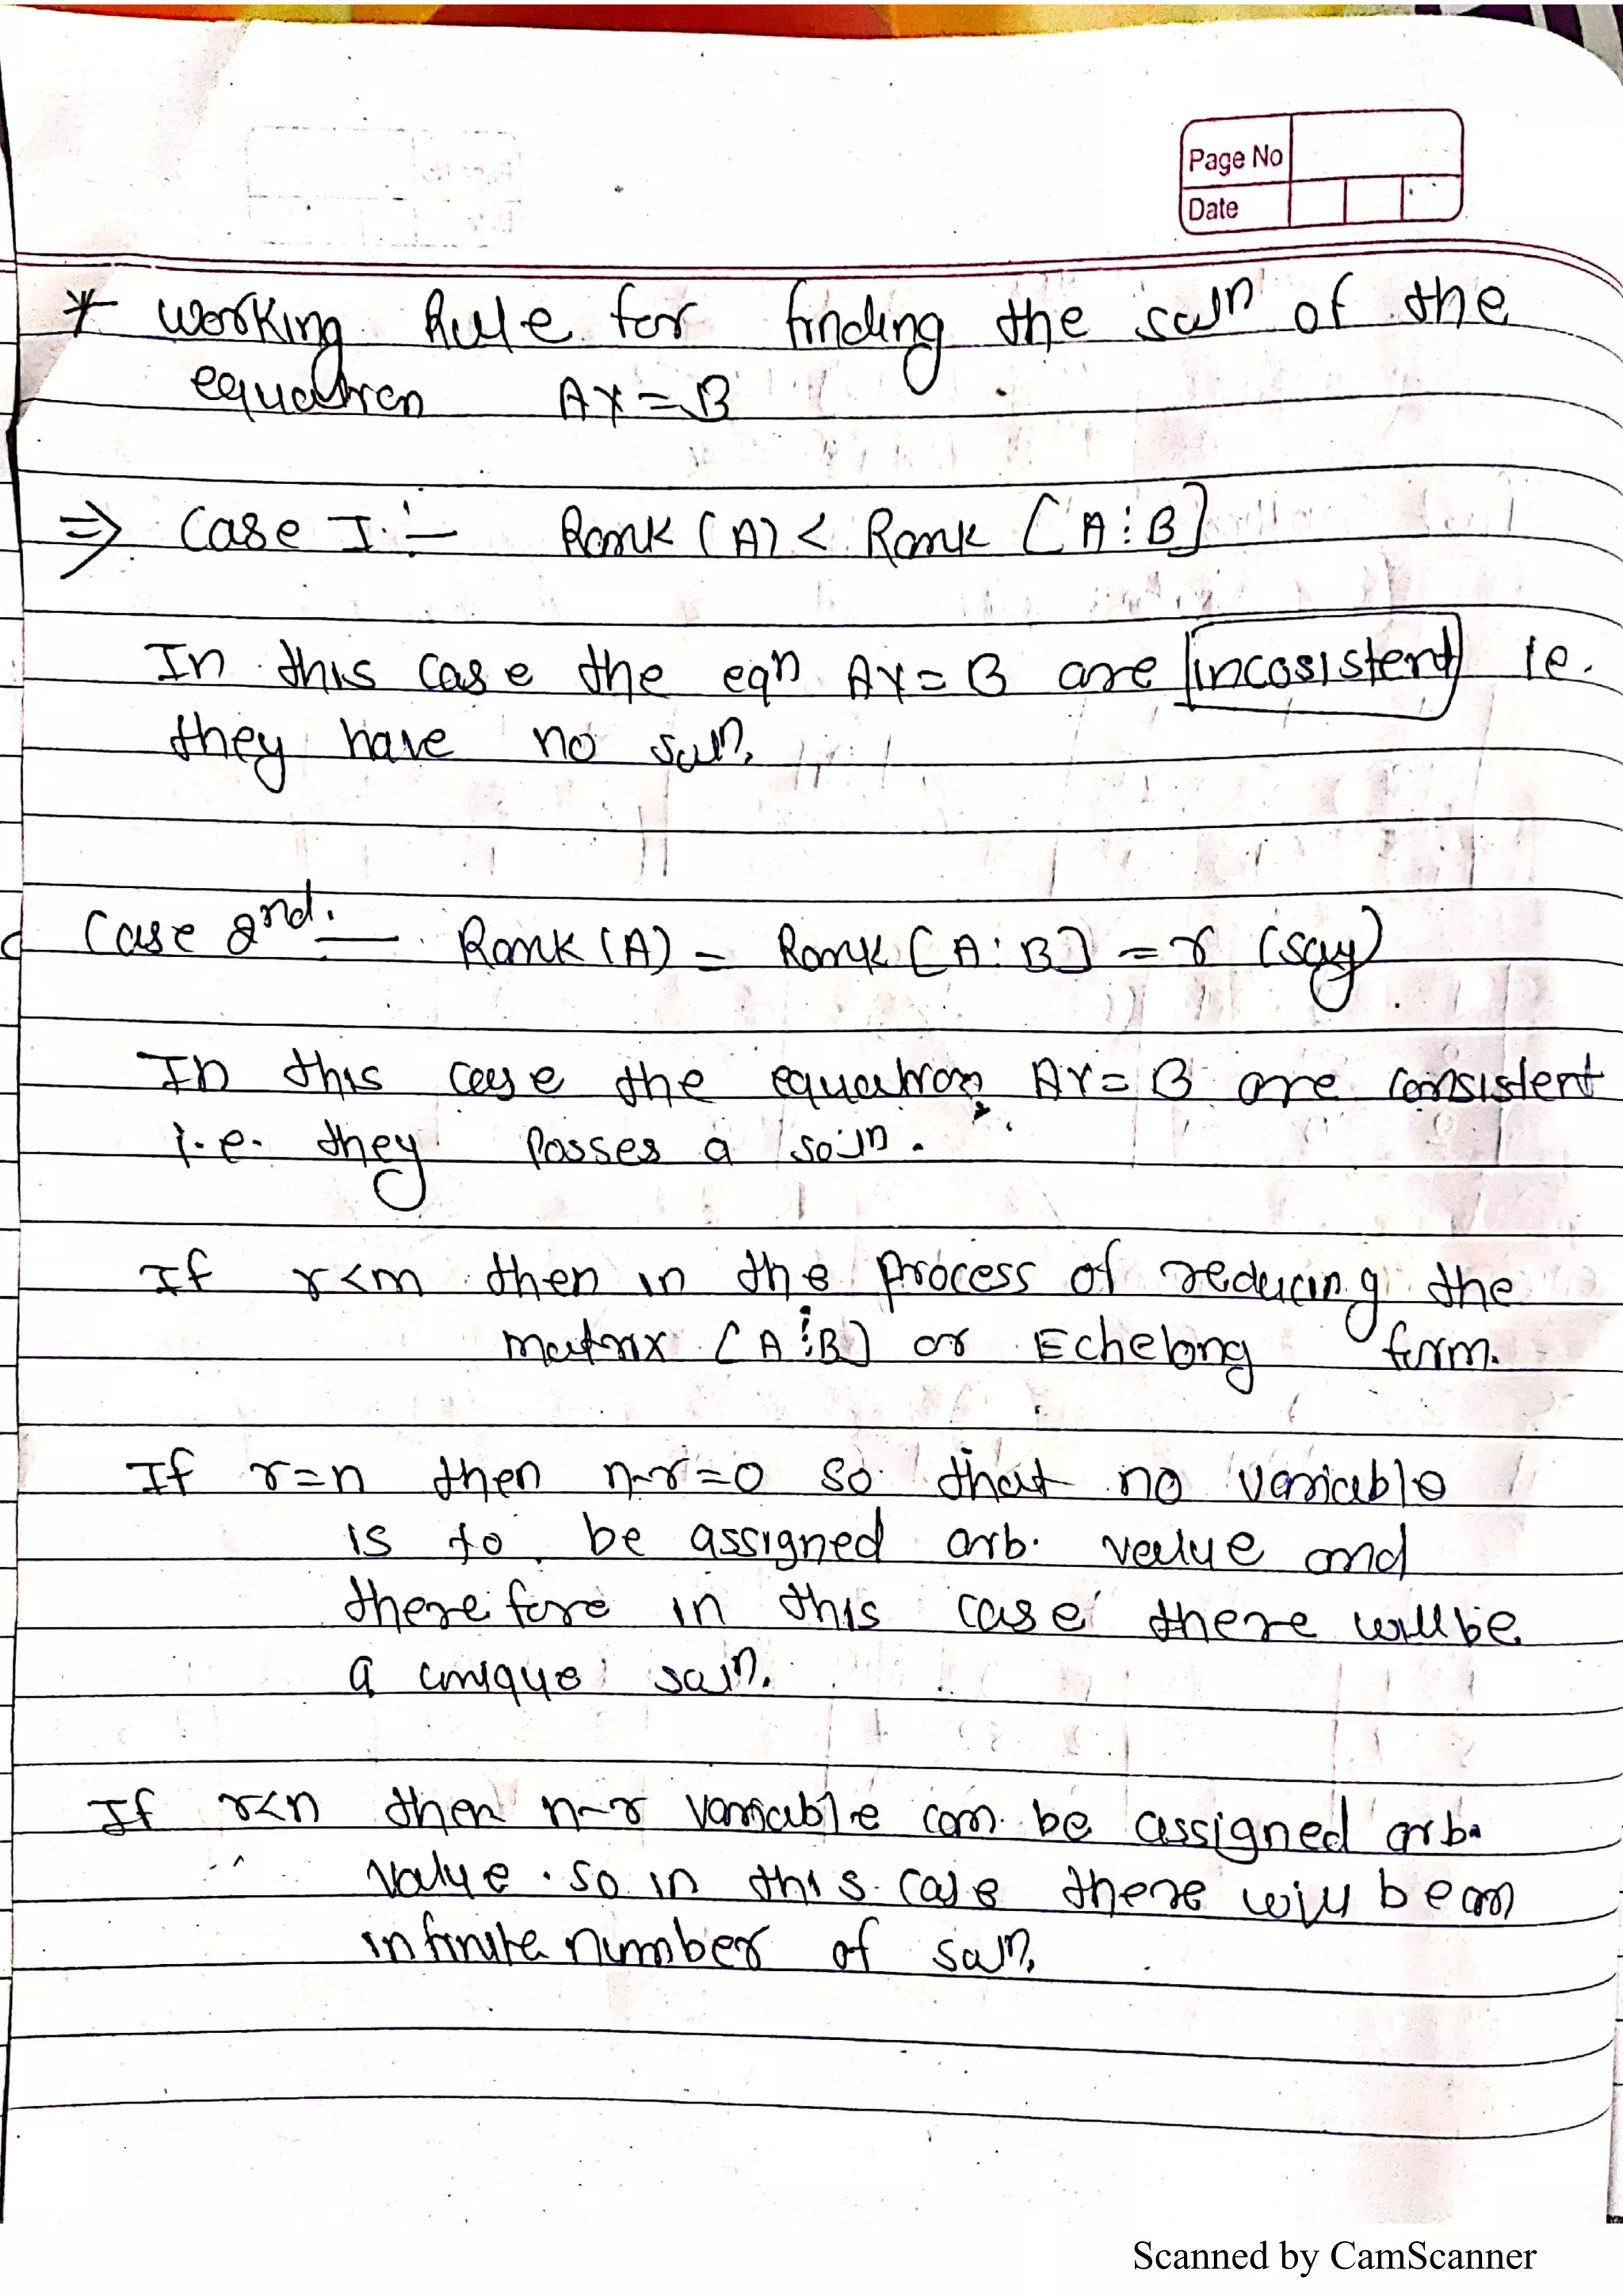 Page No
Date
* Working Rule for finding the solⁿ of the
equation AX = B
⇒ Case I :- Rank (A) < Rank [A⋮B]
In this case the eqⁿ AX = B are incosistent ie.
they have no solⁿ.
Case 2nd. — Rank (A) = Rank [A:B] = r (say)
In this case the equation, AX = B are consistent
i.e. they Posses a solⁿ.
If r<m then in the process of reducing the
matrix [A⋮B] or Echelong form.
If r=n then n-r=0 so that no variable
is to be assigned arb. value and
therefore in this case there will be
a unique solⁿ.
If r<n then n-r variable can be assigned arb.
value . so in this case there will be an
infinite number of solⁿ.
Scanned by CamScanner